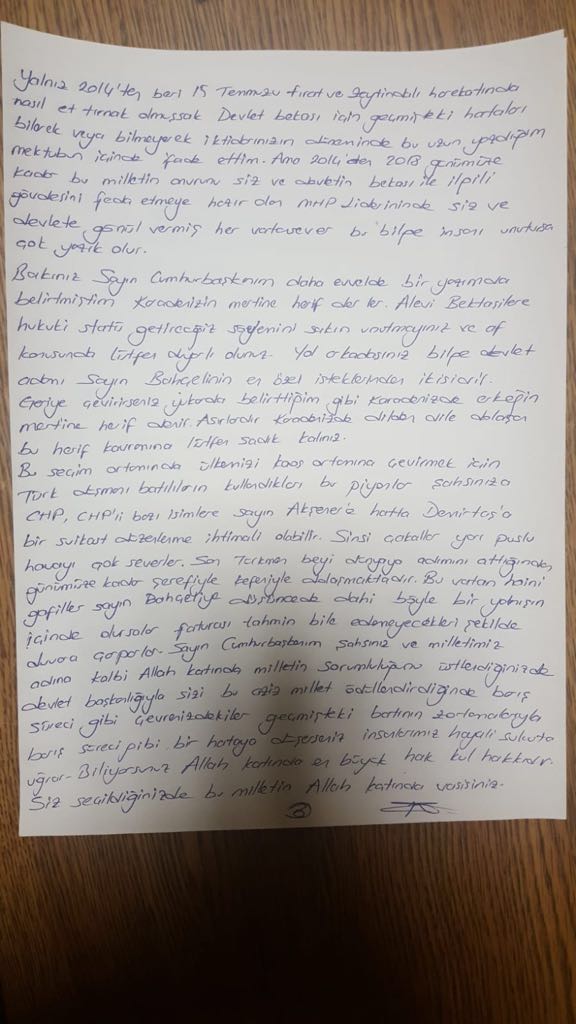 Yalnız 2014'ten beri 15 Temmuzu fırat ve Zeytindalı harekatında
nasıl et tırnak olmuşsak Devlet bekası için geçmişteki hataları
bilerek veya bilmeyerek iktidarınızın döneminde bu uzun yazdığım
mektubun içinde ifade ettim. Ama 2014'den 2018 günümüze
kadar bu milletin onurunu siz ve devletin bekası ile ilgili
gövdesini feda etmeye hazır olan MHP Liderininde siz ve
devlete gönül vermiş her vatansever bu bilge insanı unutursa
çok yazık olur.
Bakınız Sayın Cumhurbaşkanım daha evvelde bir yazımda
belirtmiştim Karadenizin mertine herif derler. Alevi Bektaşilere
hukuki statü getireceğiz sakın unutmayınız ve af
konusunda lütfen duyarlı olunuz. Yol arkadaşınız bilge devlet
adamı Sayın Bahçelinin en özel isteklerinden ikisidir.
Geriye çevirirseniz yukarıda belirttiğim gibi Karadenizde erkeğin
mertine herif denir. Asırlardır Karadenizde dilden dile dolaşan
bu herif kavramına lütfen sadık kalınız.
Bu seçim ortamında ülkemizi kaos ortamına çevirmek için
Türk düşmanı batılıların kullandıkları bu piyonlar şahsınıza
CHP, CHP'li bazı isimlere sayın Akşener'e hatta Demirtaş'a
bir suikast düzenleme ihtimali olabilir. Sinsi çakallar yarı puslu
havayı çok severler. Son Türkmen beyi dünyaya adımını attığından
günümüze kadar şerefiyle kefeniyle dolaşmaktadır. Bu vatan haini
gafiller sayın Bahçeliye düşüncede dahi böyle bir yanlışın
içinde olursalar faturası tahmin bile edemeyecekleri şekilde
duvara çarparlar. Sayın Cumhurbaşkanım şahsınız ve milletimiz
adına kalbi Allah katında milletin sorumluluğunu üstlendiğinizde
devlet başkanlığıyla sizi bu aziz millet ödüllendirdiğinde barış
süreci gibi çevrenizdekiler geçmişteki batının zorlamalarıyla
barış süreci gibi bir hataya düşerseniz insanlarımız hayali sukuta
uğrar. Biliyorsunuz Allah katında en büyük hak kul hakkıdır.
Siz seçildiğinizde bu milletin Allah katında vasisiniz.